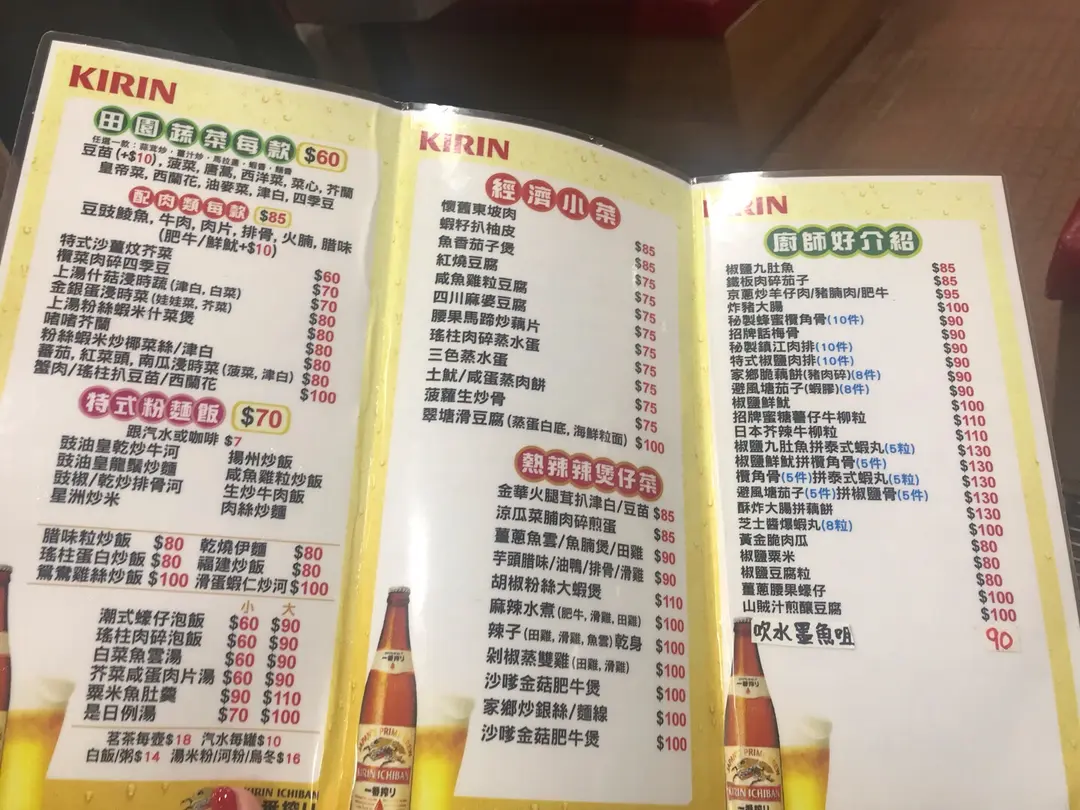 KIRIN
田園蔬菜每款 $60
任選一款：蒜茸炒・薑汁炒・馬拉盞・蝦醬・腐乳
豆苗(+$10), 菠菜, 唐萵, 西洋菜, 菜心, 芥蘭
皇帝菜, 西蘭花, 油麥菜, 津白, 四季豆
配肉類每款 $85
豆豉鯪魚, 牛肉, 肉片, 排骨, 火腩, 腊味
(肥牛/鮮魷+$10)
特式沙薑炆芥菜 $60
欖菜肉碎四季豆 $70
上湯什菇浸時蔬(津白, 白菜) $70
金銀蛋浸時菜(娃娃菜, 芥菜) $80
上湯粉絲蝦米什菜煲 $80
啫啫芥蘭 $80
粉絲蝦米炒椰菜絲/津白 $80
番茄, 紅菜頭, 南瓜浸時菜(菠菜, 津白) $80
蟹肉/瑤柱扒豆苗/西蘭花 $100
特式粉麵飯 $70
跟汽水或咖啡 $7
豉油皇乾炒牛河 揚州炒飯
豉油皇龍鬚炒麵 咸魚雞粒炒飯
豉椒/乾炒排骨河 生炒牛肉飯
星洲炒米 肉絲炒麵
腊味粒炒飯 $80 乾燒伊麵 $80
瑤柱蛋白炒飯 $80 福建炒飯 $80
鴛鴦雞絲炒飯 $100 滑蛋蝦仁炒河 $100
小 大
潮式蠔仔泡飯 $60 $90
瑤柱肉碎泡飯 $60 $90
白菜魚雲湯 $60 $90
芥菜咸蛋肉片湯 $60 $90
粟米魚肚羹 $90 $110
是日例湯 $70 $100
茗茶每壺$18 汽水每罐$10
白飯/粥$14 湯米粉/河粉/烏冬$16
KIRIN ICHIBAN
一番搾り
KIRIN
經濟小菜
懷舊東坡肉 $85
蝦籽扒柚皮 $85
魚香茄子煲 $75
紅燒豆腐 $75
咸魚雞粒豆腐 $75
四川麻婆豆腐 $75
腰果馬蹄炒藕片 $75
瑤柱肉碎蒸水蛋 $75
三色蒸水蛋 $75
土魷/咸蛋蒸肉餅 $75
菠蘿生炒骨 $75
翠塘滑豆腐(蒸蛋白底, 海鮮粒面) $100
熱辣辣煲仔菜
金華火腿茸扒津白/豆苗 $85
涼瓜菜脯肉碎煎蛋 $85
薑蔥魚雲/魚腩煲/田雞 $90
芋頭腊味/油鴨/排骨/滑雞 $90
胡椒粉絲大蝦煲 $110
麻辣水煮(肥牛, 滑雞, 田雞) $100
辣子(田雞, 滑雞, 魚雲)乾身 $100
剁椒蒸雙雞(田雞, 滑雞) $100
沙嗲金菇肥牛煲 $100
家鄉炒銀絲/麵線 $100
沙嗲金菇肥牛煲 $100
一番搾り
KIRIN ICHIBAN
一番搾り
KIRIN
廚師好介紹
椒鹽九肚魚 $85
鐵板肉碎茄子 $85
京蔥炒羊仔肉/豬腩肉/肥牛 $95
炸豬大腸 $100
秘製蜂蜜欖角骨(10件) $90
招牌話梅骨 $90
秘製鎮江肉排(10件) $90
特式椒鹽肉排(10件) $90
家鄉脆藕餅(豬肉碎)(8件) $90
避風塘茄子(蝦膠)(8件) $90
椒鹽鮮魷 $100
招牌蜜糖薯仔牛柳粒 $110
日本芥辣牛柳粒 $110
椒鹽九肚魚拼泰式蝦丸(5粒) $130
椒鹽鮮魷拼欖角骨(5件) $130
欖角骨(5件)拼泰式蝦丸(5粒) $130
避風塘茄子(5件)拼椒鹽骨(5件) $130
酥炸大腸拼藕餅 $130
芝士醬爆蝦丸(8粒) $100
黃金脆肉瓜 $80
椒鹽粟米 $80
椒鹽豆腐粒 $80
薑蔥腰果蠔仔 $100
山賊汁煎釀豆腐 $100
吹水墨魚咀 90
一番搾り
KIRIN ICHIBAN
一番搾り